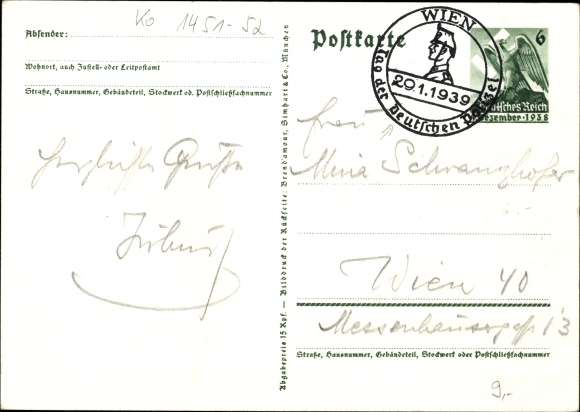 Ko 1451-52
Absender:
Wohnort, auch Zustell- oder Leitpostamt
Straße, Hausnummer, Gebäudeteil, Stockwerk od. Postschließfachnummer
Herzlichste Grüße
Abgabepreis 15 Rpf. — Bilddruck der Rückseite: Brend'amour, Simhart & Co., München
Postkarte
WIEN
29.1.1939
Tag der Deutschen
6
Deutsches Reich
Dezember · 1938
Frau
Mina Schwanghofer
Wien 40
Messenhausergasse 13
Straße, Hausnummer, Gebäudeteil, Stockwerk oder Postschließfachnummer
9,-